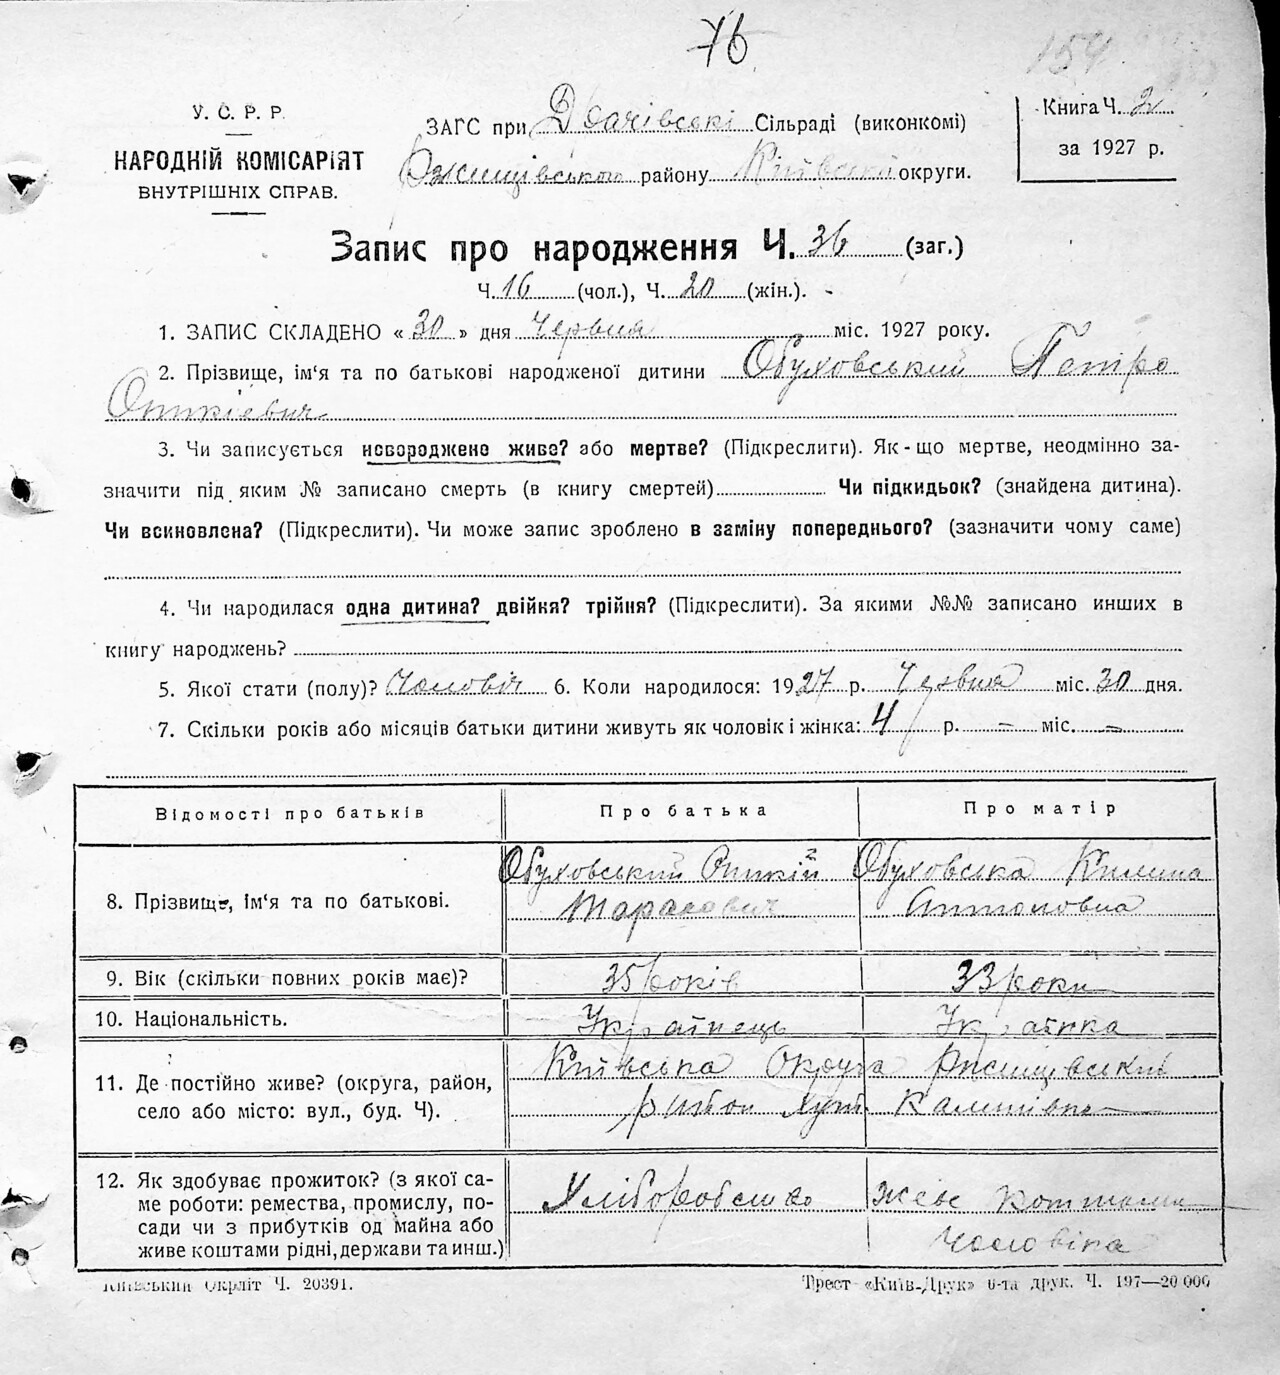 76
154
У. С. Р. Р.
НАРОДНІЙ КОМІСАРІЯТ
ВНУТРІШНІХ СПРАВ.
ЗАГС при Драчівські Сільраді (виконкомі)
Ржищівськом району Київської округи.
Книга Ч. 2
за 1927 р.
Запис про народження Ч. 36 (заг.)
Ч. 16 (чол.), Ч. 20 (жін.).
1. ЗАПИС СКЛАДЕНО « 30 » дня Червня міс. 1927 року.
2. Прізвище, ім'я та по батькові народженої дитини Обуховський Петро
3. Чи записується новороджене живе? або мертве? (Підкреслити). Як-що мертве, неодмінно за-
значити під яким № записано смерть (в книгу смертей) Чи підкидьок? (знайдена дитина).
Чи всиновлена? (Підкреслити). Чи може запис зроблено в заміну попереднього? (зазначити чому саме)
4. Чи народилася одна дитина? двійня? трійня? (Підкреслити). За якими №№ записано инших в
книгу народжень?
5. Якої стати (полу)? Чоловіч 6. Коли народилося: 1927 р. Червня міс. 30 дня.
7. Скільки років або місяців батьки дитини живуть як чоловік і жінка: 4 р. = міс. =
Відомості про батьків Про батька Про матір
8. Прізвище, ім'я та по батькові.
Обуховський
Тарасович
Обуховська Килина
Антоновна
9. Вік (скільки повних років має)? 35 років 33 роки
10. Національність. Українець Українка
11. Де постійно живе? (округа, район,
село або місто: вул., буд. Ч).
Київська Округа Ржищівський
район хут.
12. Як здобуває прожиток? (з якої са-
ме роботи: ремества, промислу, по-
сади чи з прибутків од майна або
живе коштами рідні, держави та инш.)
Хліборобство
живе коштами
чоловіка
Київський Окрліт Ч. 20391.
Трест «Київ-Друк» 6-та друк. Ч. 197—20 000